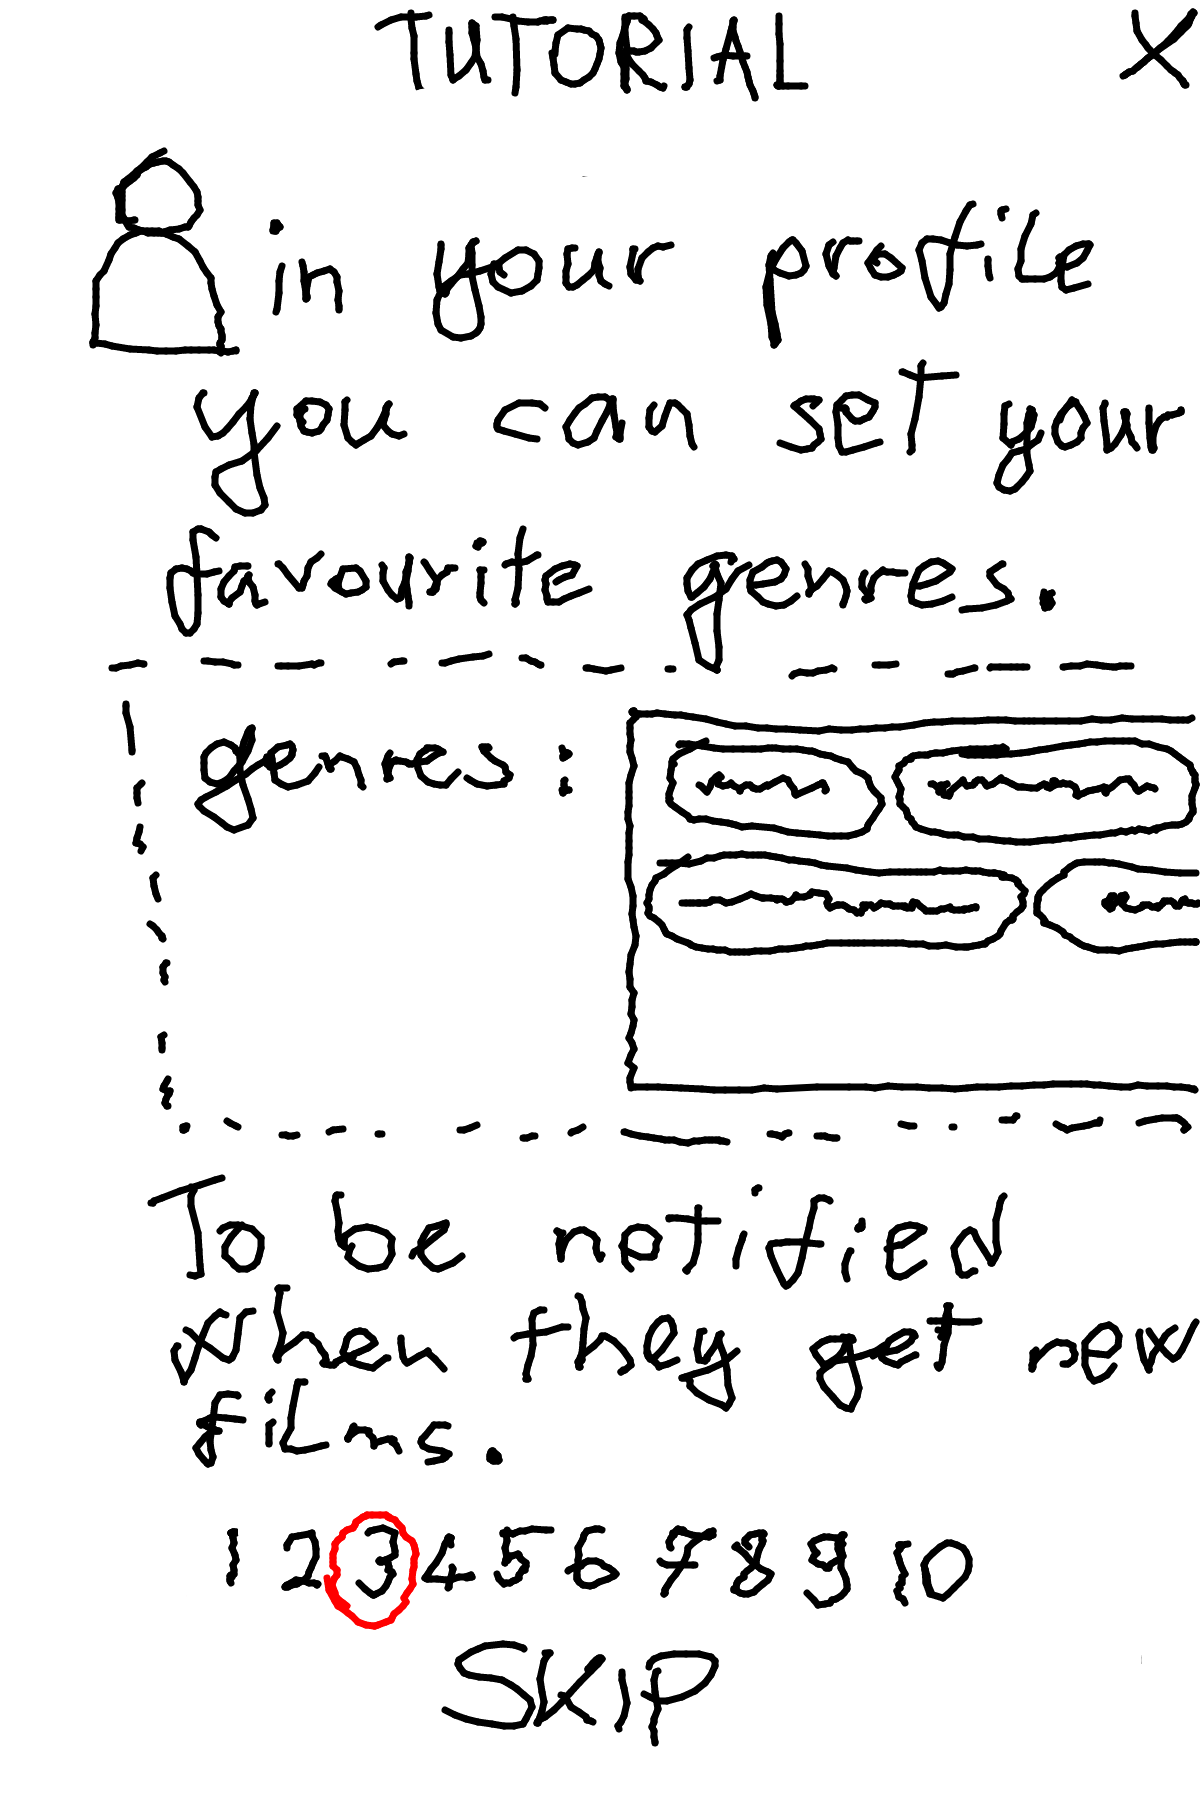 TUTORIAL X
in your profile
you can set your
favourite genres.
genres:
To be notified
when they get new
films.
1 2 3 4 5 6 7 8 9 10
SKIP